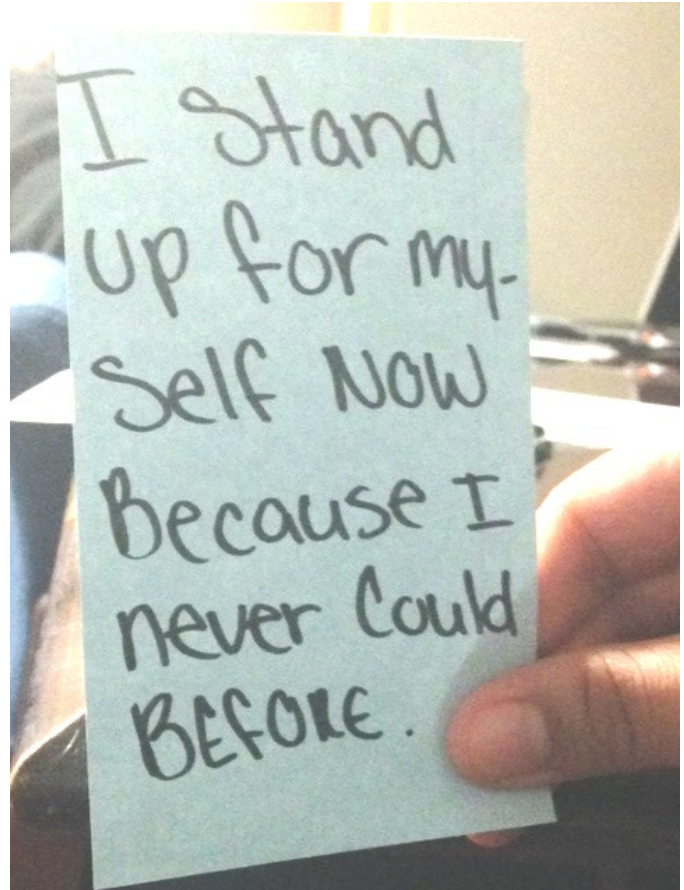 I Stand
Up for my-
Self NOW
Because I
never Could
BEFORE.